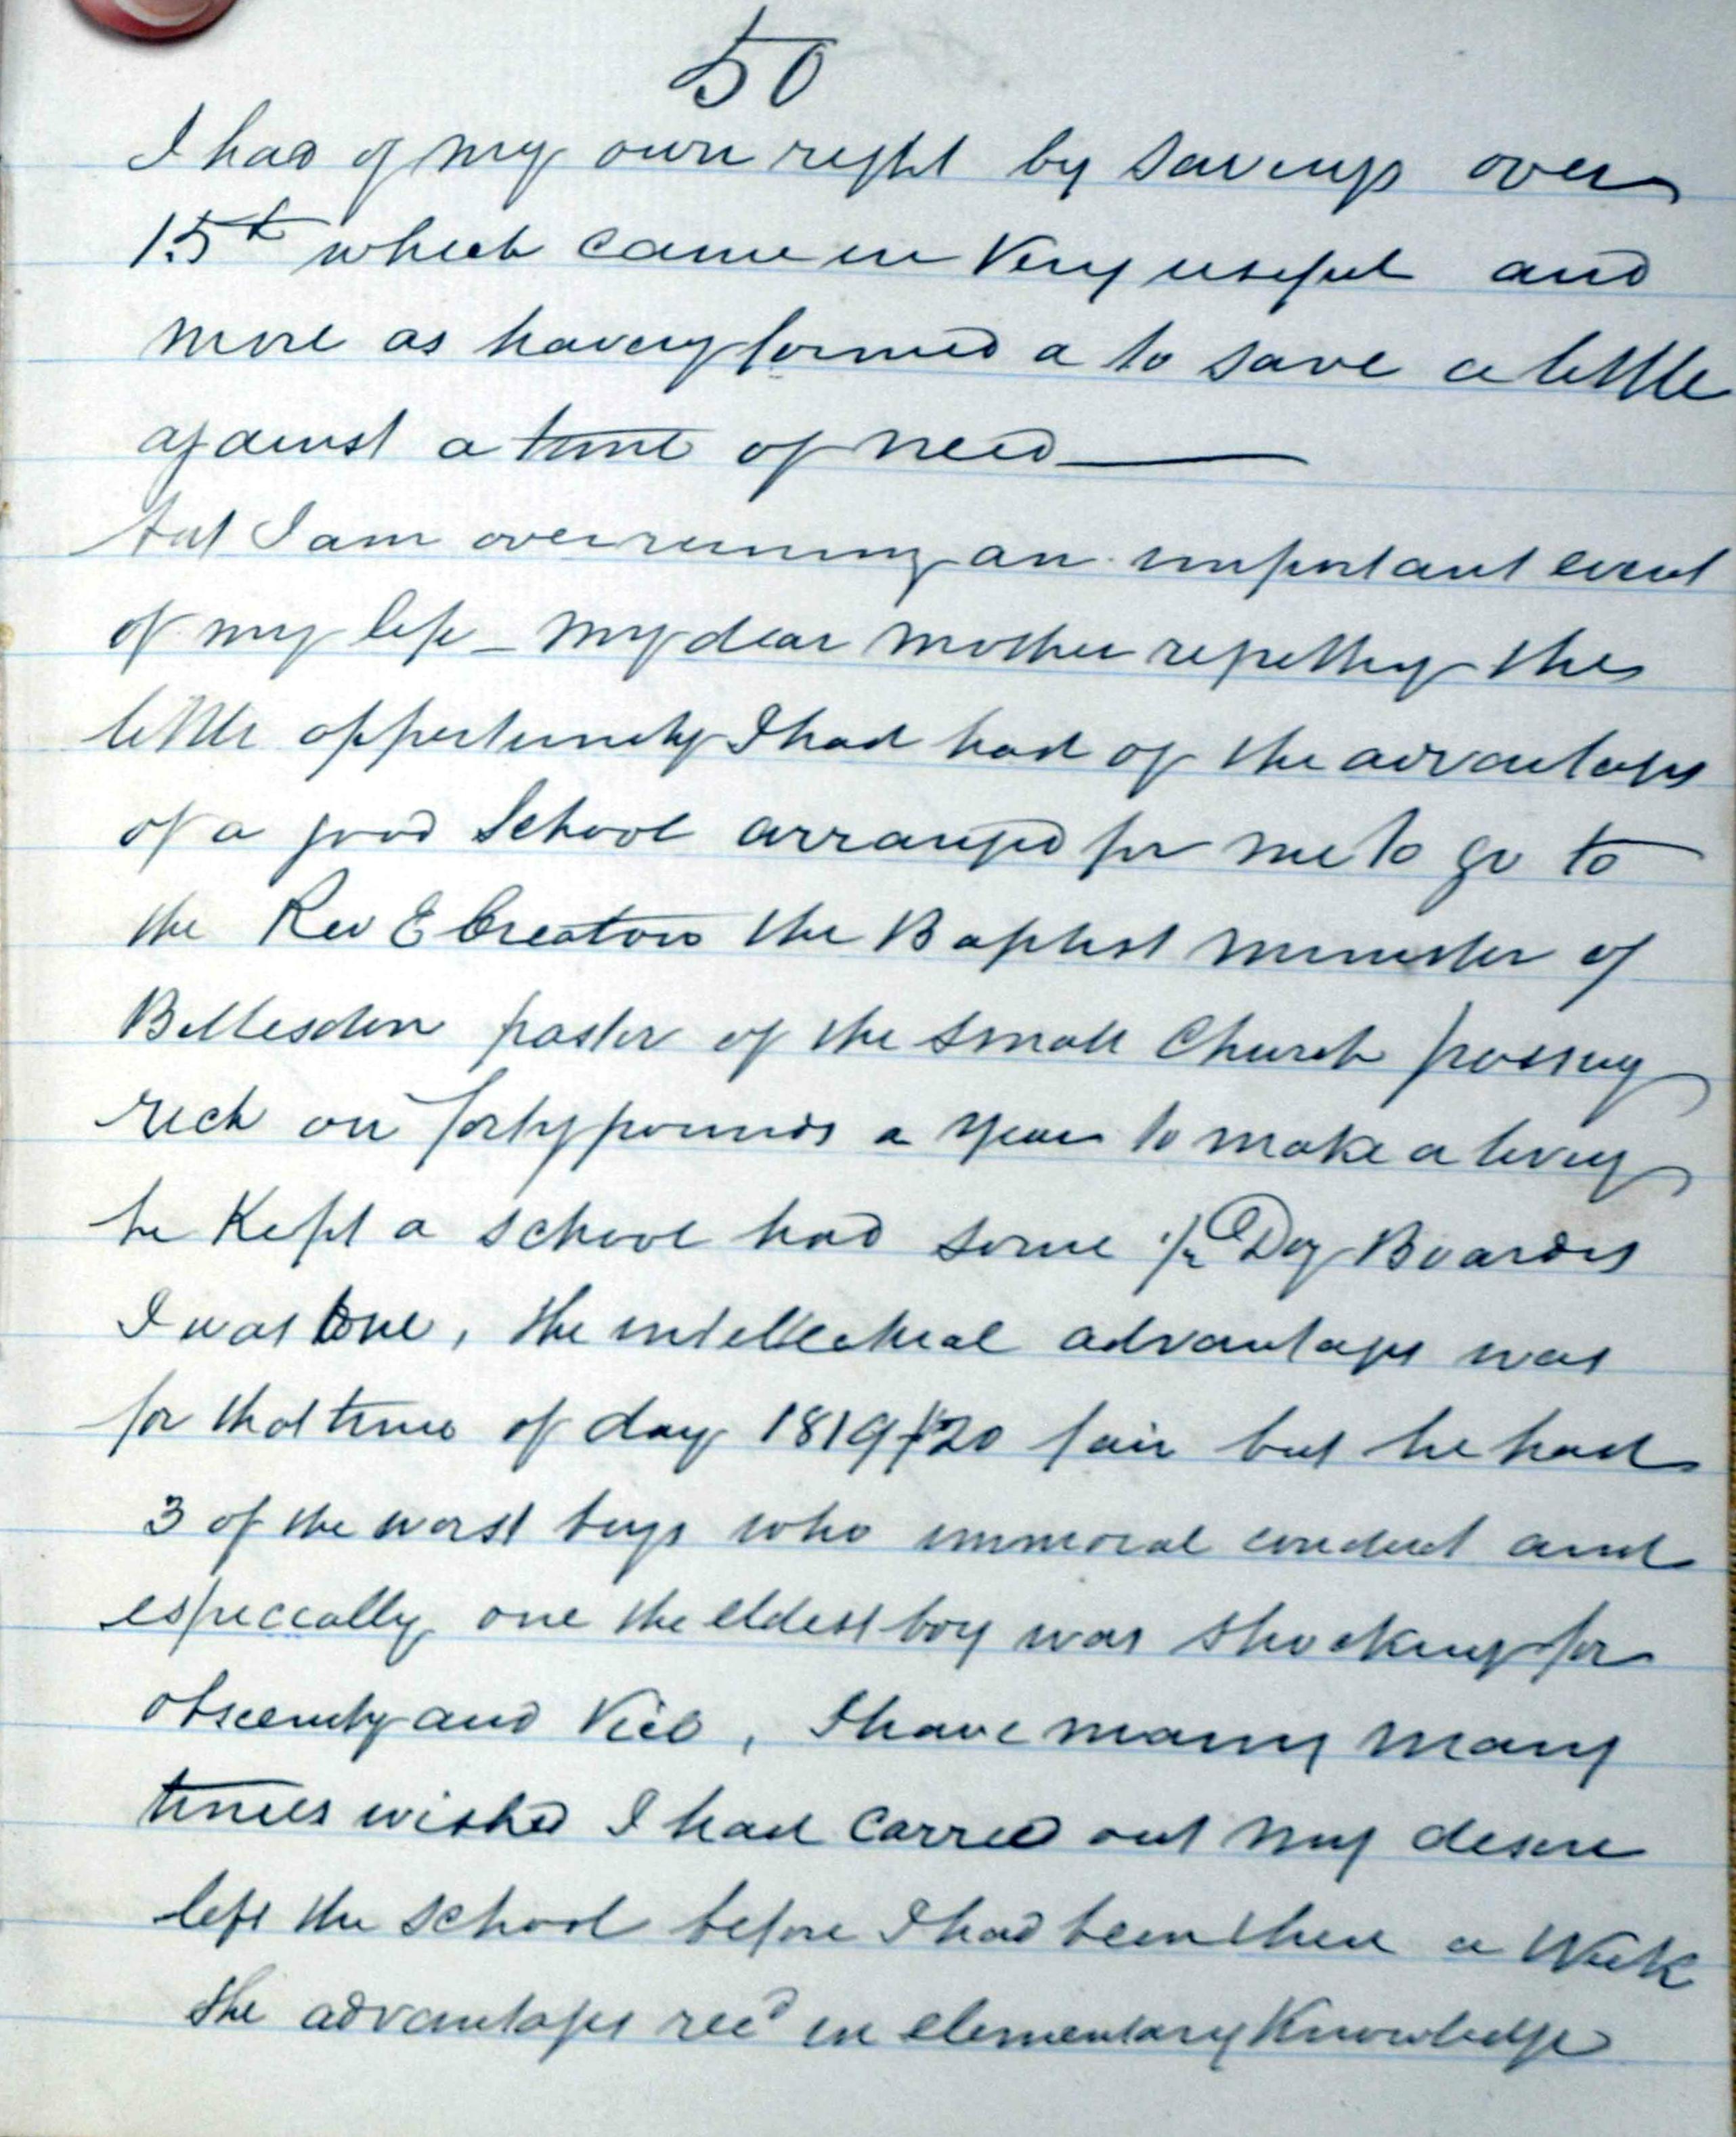 50
I had of my own right by savings over
15£ which came in Very useful and
more as having formed a to save a little
against a time of need
but I am overruning an important event
of my life – my dear mother regretting the
little oppertunity I had had of the advantages
of a good School arranged for me to go to
the Rev E Creaton the Baptist minister of
Billesden pastor of the small Church passing
rich on forty pounds a year to make a living
he Kept a school had some ½ Day Boarders
I was one, the intellectual advantages was
for that time of day 1819/20 fair but he had
3 of the worst boys who immoral conduct and
especcally one the eldest boy was shocking for
obscenity and Vice, I have many many
times wished I had carred out my desire
left the school before I had been there a Week
the advantages recd in elementary Knowledge